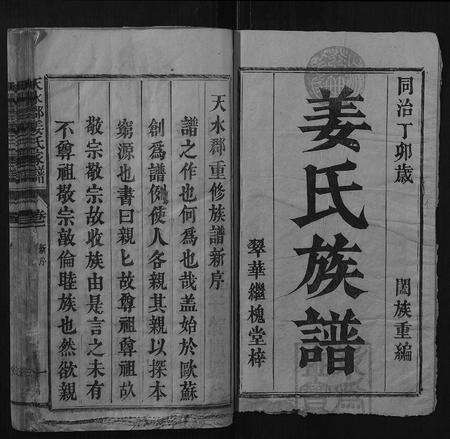 同治丁卯歲 闔族重編
姜氏族譜
翠華繼槐堂梓
天水郡重修族譜新序
譜之作也何為也哉蓋始於歐蘇
創為譜例使人各親其親以探本
窮源也書曰親匕故尊祖尊祖故
敬宗敬宗故收族由是言之未有
不尊祖敬宗敦倫睦族也然欲親
天水郡姜氏家譜 卷 新序